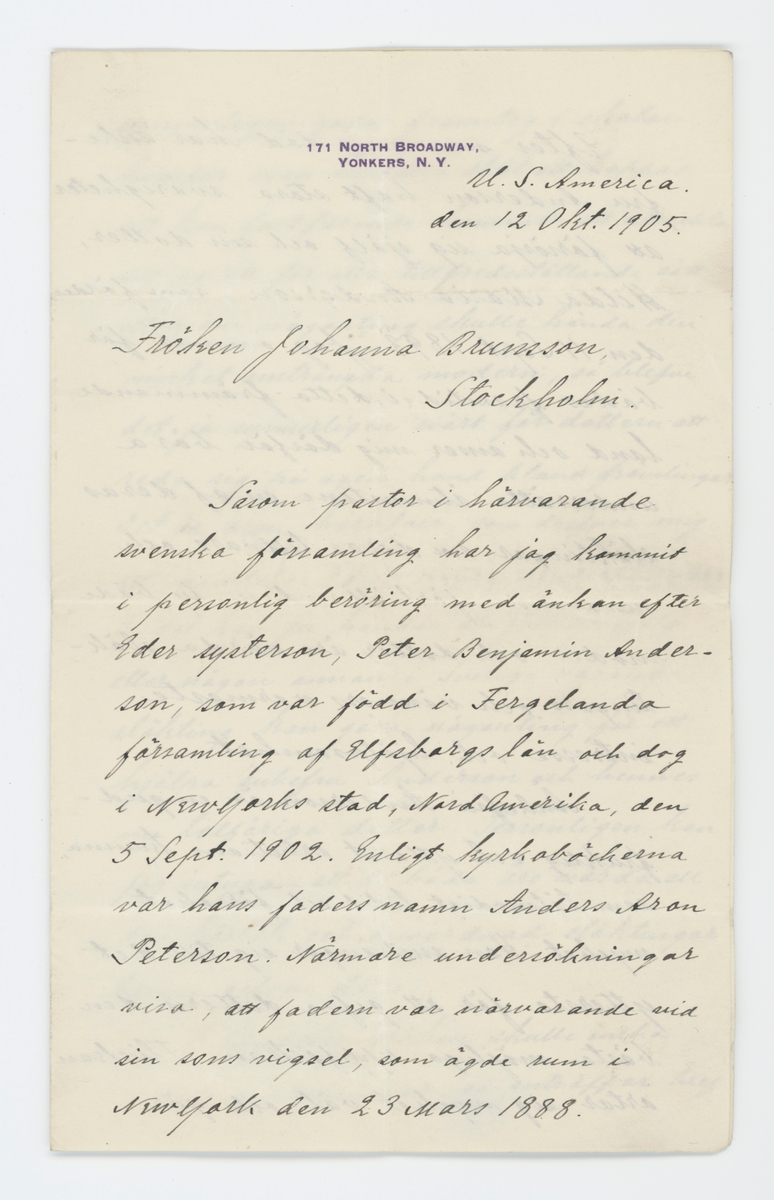 171 NORTH BROADWAY,
YONKERS, N. Y.
U. S. America.
den 12 Okt. 1905.
Fröken Johanna Brunsson,
Stockholm.
Såsom pastor i härvarande
svenska församling har jag kommit
i personlig beröring med änkan efter
Eder systerson, Peter Benjamin Ander-
son, som var född i Fergelanda
församling af Elfsborgs län och dog
i NewYorks stad, Nord Amerika, den
5 Sept. 1902. Enligt kyrkoböckerna
var hans faders namn Anders Aron
Peterson. Närmare undersökningar
visa, att fadern var närvarande vid
sin sons vigsel, som ägde rum i
NewYork den 23 Mars 1888.